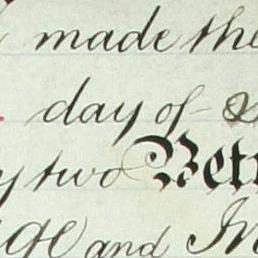 made the
day of
y two Betw
and